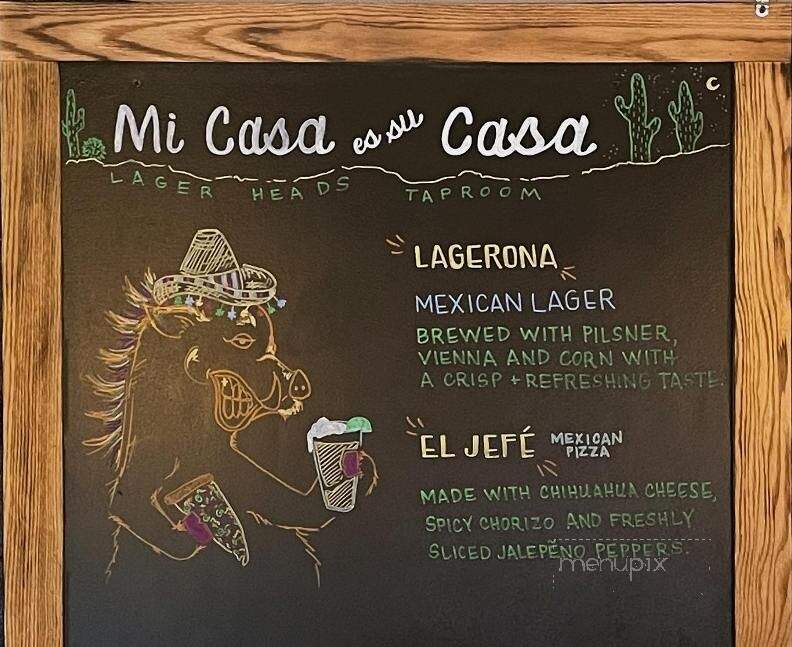 Mi Casa es su Casa
LAGER HEADS TAPROOM
LAGERONA
MEXICAN LAGER
BREWED WITH PILSNER,
VIENNA AND CORN WITH
A CRISP + REFRESHING TASTE.
EL JEFÉ MEXICAN
PIZZA
MADE WITH CHIHUAHUA CHEESE,
SPICY CHORIZO AND FRESHLY
SLICED JALEPEÑO PEPPERS.
menupix